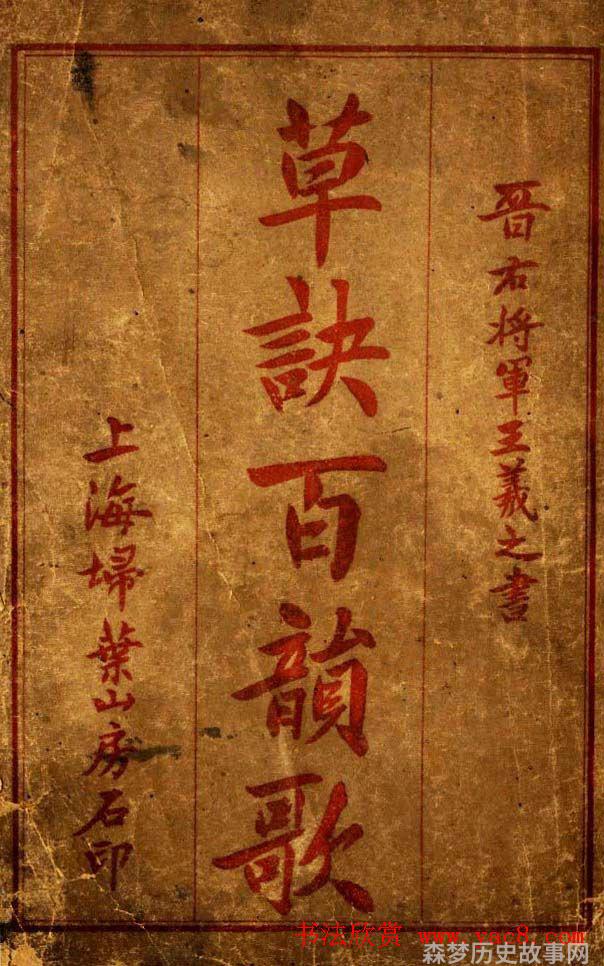 晋右将軍王羲之書
草訣百韻歌
上海埽葉山房石印
书法欣赏 www.yac8.com
森梦历史故事网